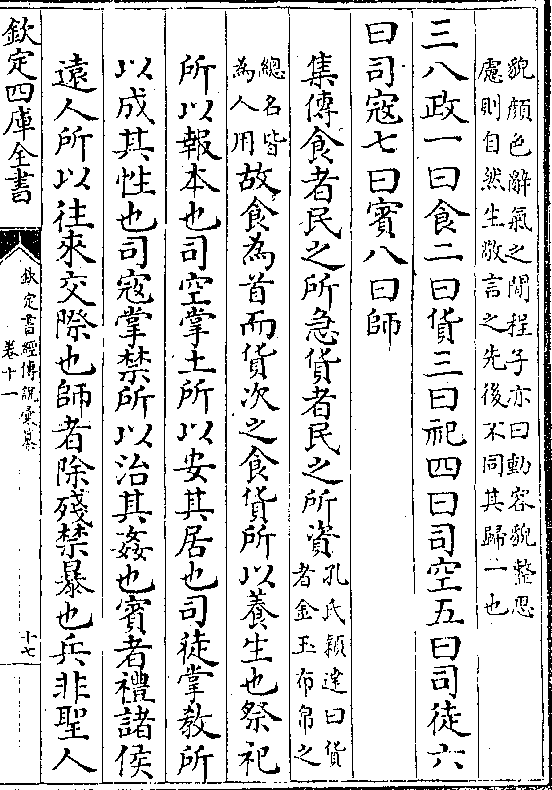 貌顔色辭氣之間程子亦曰動容貌整思
慮則自然生敬言之先後不同其歸一也
三八政一曰食二曰貨三曰祀四曰司空五曰司徒六
曰司寇七曰賓八曰師
集傳食者民之所急貨者民之所資孔氏穎逹曰貨
者金玉布帛之
總名皆
為人用故食為首而貨次之食貨所以養生也祭祀
所以報本也司空掌土所以安其居也司徒掌教所
以成其性也司寇掌禁所以治其姦也賓者禮諸侯
遠人所以往來交際也師者除殘禁暴也兵非聖人
欽定四庫全書
欽定書經傳說彚纂
卷十一
十七